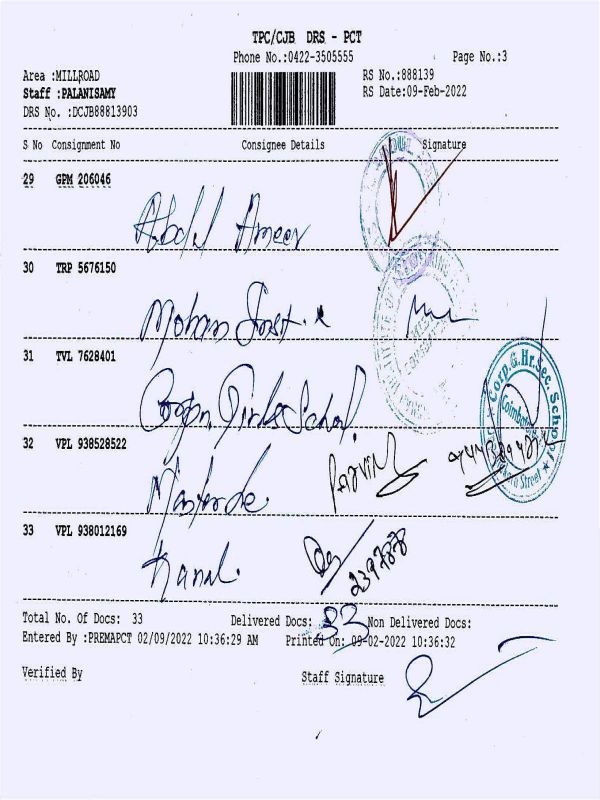 TPC/CJB DRS - PCT
Phone No.:0422-3505555
Page No.:3
Area :MILLROAD
RS No.:888139
Staff :PALANISAMY
RS Date:09-Feb-2022
DRS No. :DCJB88813903
S No Consignment No Consignee Details Signature
29 GPM 206046
Abdul Ameer
30 TRP 5676150
Mohan
31 TVL 7628401
School
Corp.G.Hr.Sec. School
Coimbatore
Street
32 VPL 938528522
33 VPL 938012169
Kamal.
Total No. Of Docs: 33 Delivered Docs: 33 Non Delivered Docs:
Entered By :PREMAPCT 02/09/2022 10:36:29 AM Printed On: 09-02-2022 10:36:32
Verified By Staff Signature